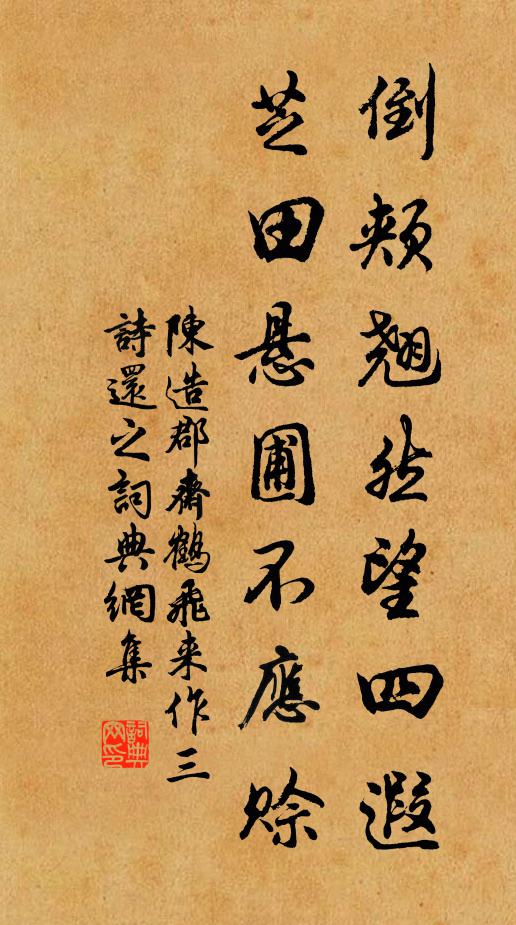 倒頰翹然望四遐
芝田悬圃不應賒
陳造郡齋鶴飛来作三
詩還之詞典網集
詞典网印